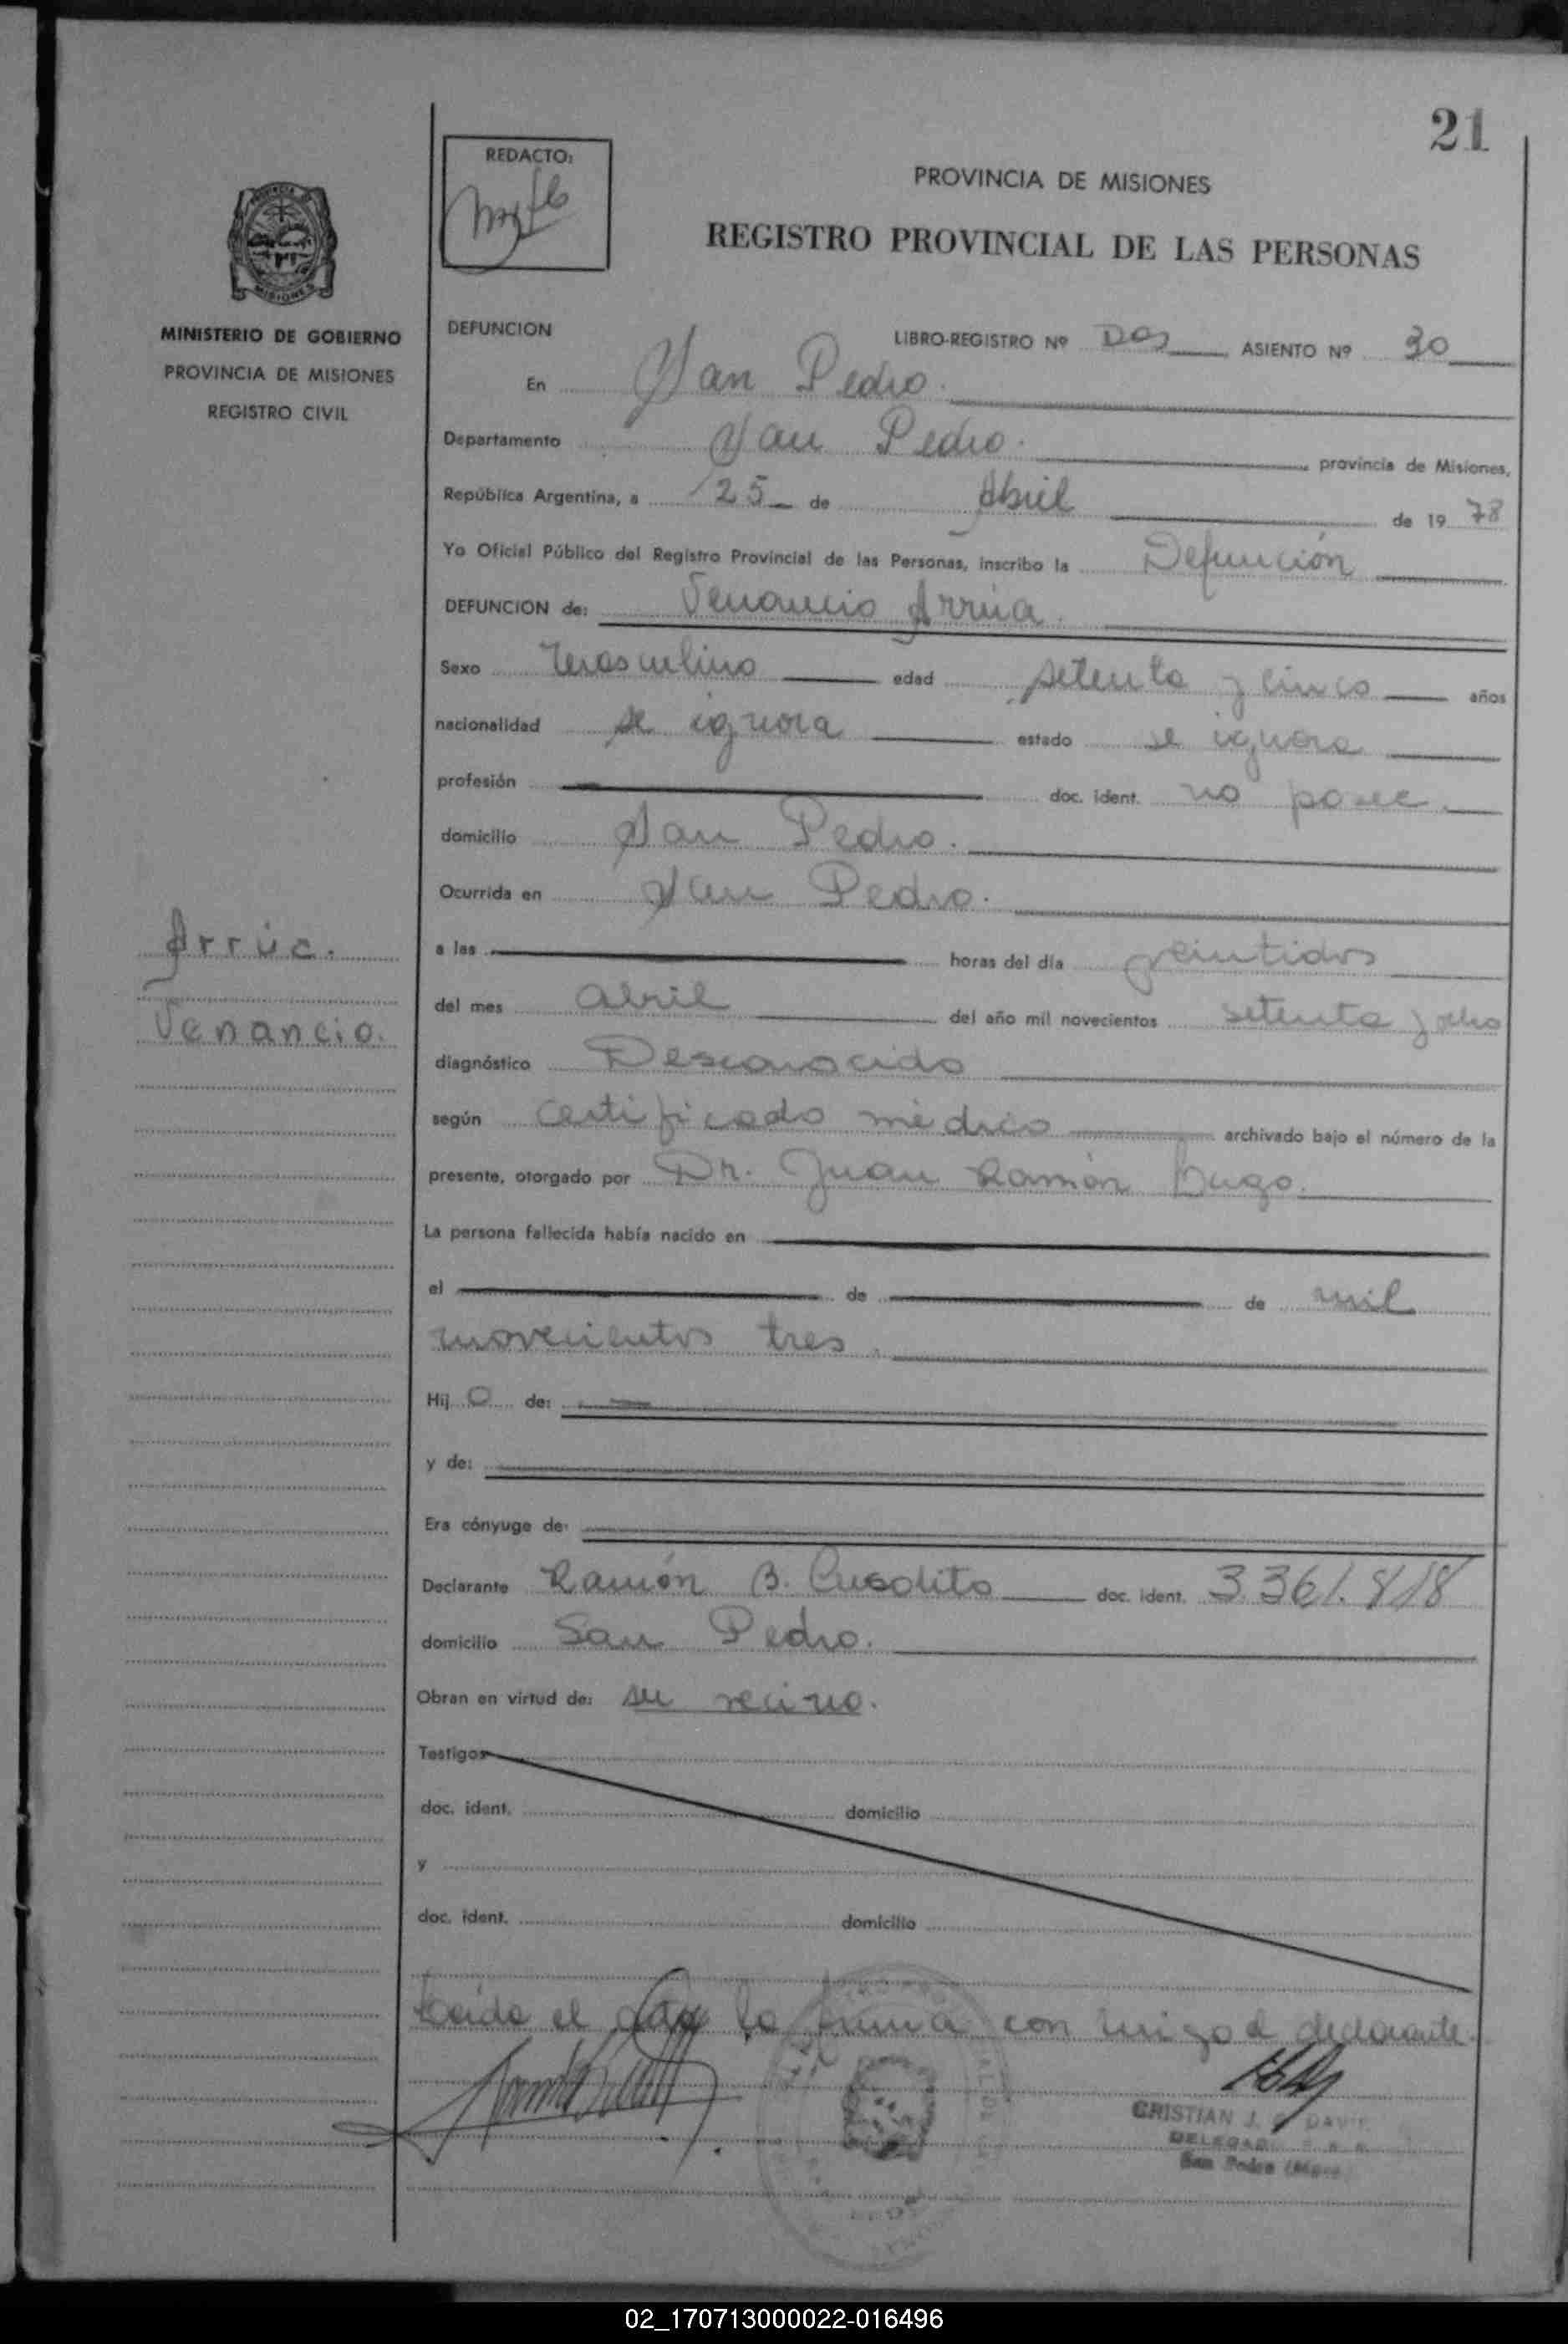 21
REDACTO:
PROVINCIA DE MISIONES
REGISTRO PROVINCIAL DE LAS PERSONAS
MINISTERIO DE GOBIERNO
PROVINCIA DE MISIONES
REGISTRO CIVIL
DEFUNCION LIBRO-REGISTRO Nº Dos ASIENTO Nº 30
En San Pedro.
Departamento San Pedro. provincia de Misiones,
República Argentina, a 25 de Abril de 19 78
Yo Oficial Público del Registro Provincial de las Personas, inscribo la Defunción
DEFUNCION de: Venancio Arrúa.
Sexo Masculino edad setenta y cinco años
nacionalidad se ignora estado se ignora
profesión doc. ident. no posee.
domicilio San Pedro.
Ocurrida en San Pedro.
Arrúa.
Venancio.
a las horas del día veintidos
del mes abril del año mil novecientos setenta y ocho
diagnóstico Desconocido
según certificado médico archivado bajo el número de la
presente, otorgado por Dr. Juan Ramón
La persona fallecida había nacido en
el de de mil
novecientos tres.
Hij o de:
y de:
Era cónyuge de:
Declarante Ramón B. doc. ident. 3.361.818
domicilio San Pedro.
Obran en virtud de: su vecino.
Testigos
doc. ident. domicilio
y
doc. ident. domicilio
Leida el acta la firma con migo el declarante.
CRISTIAN J.
San Pedro
02_170713000022-016496